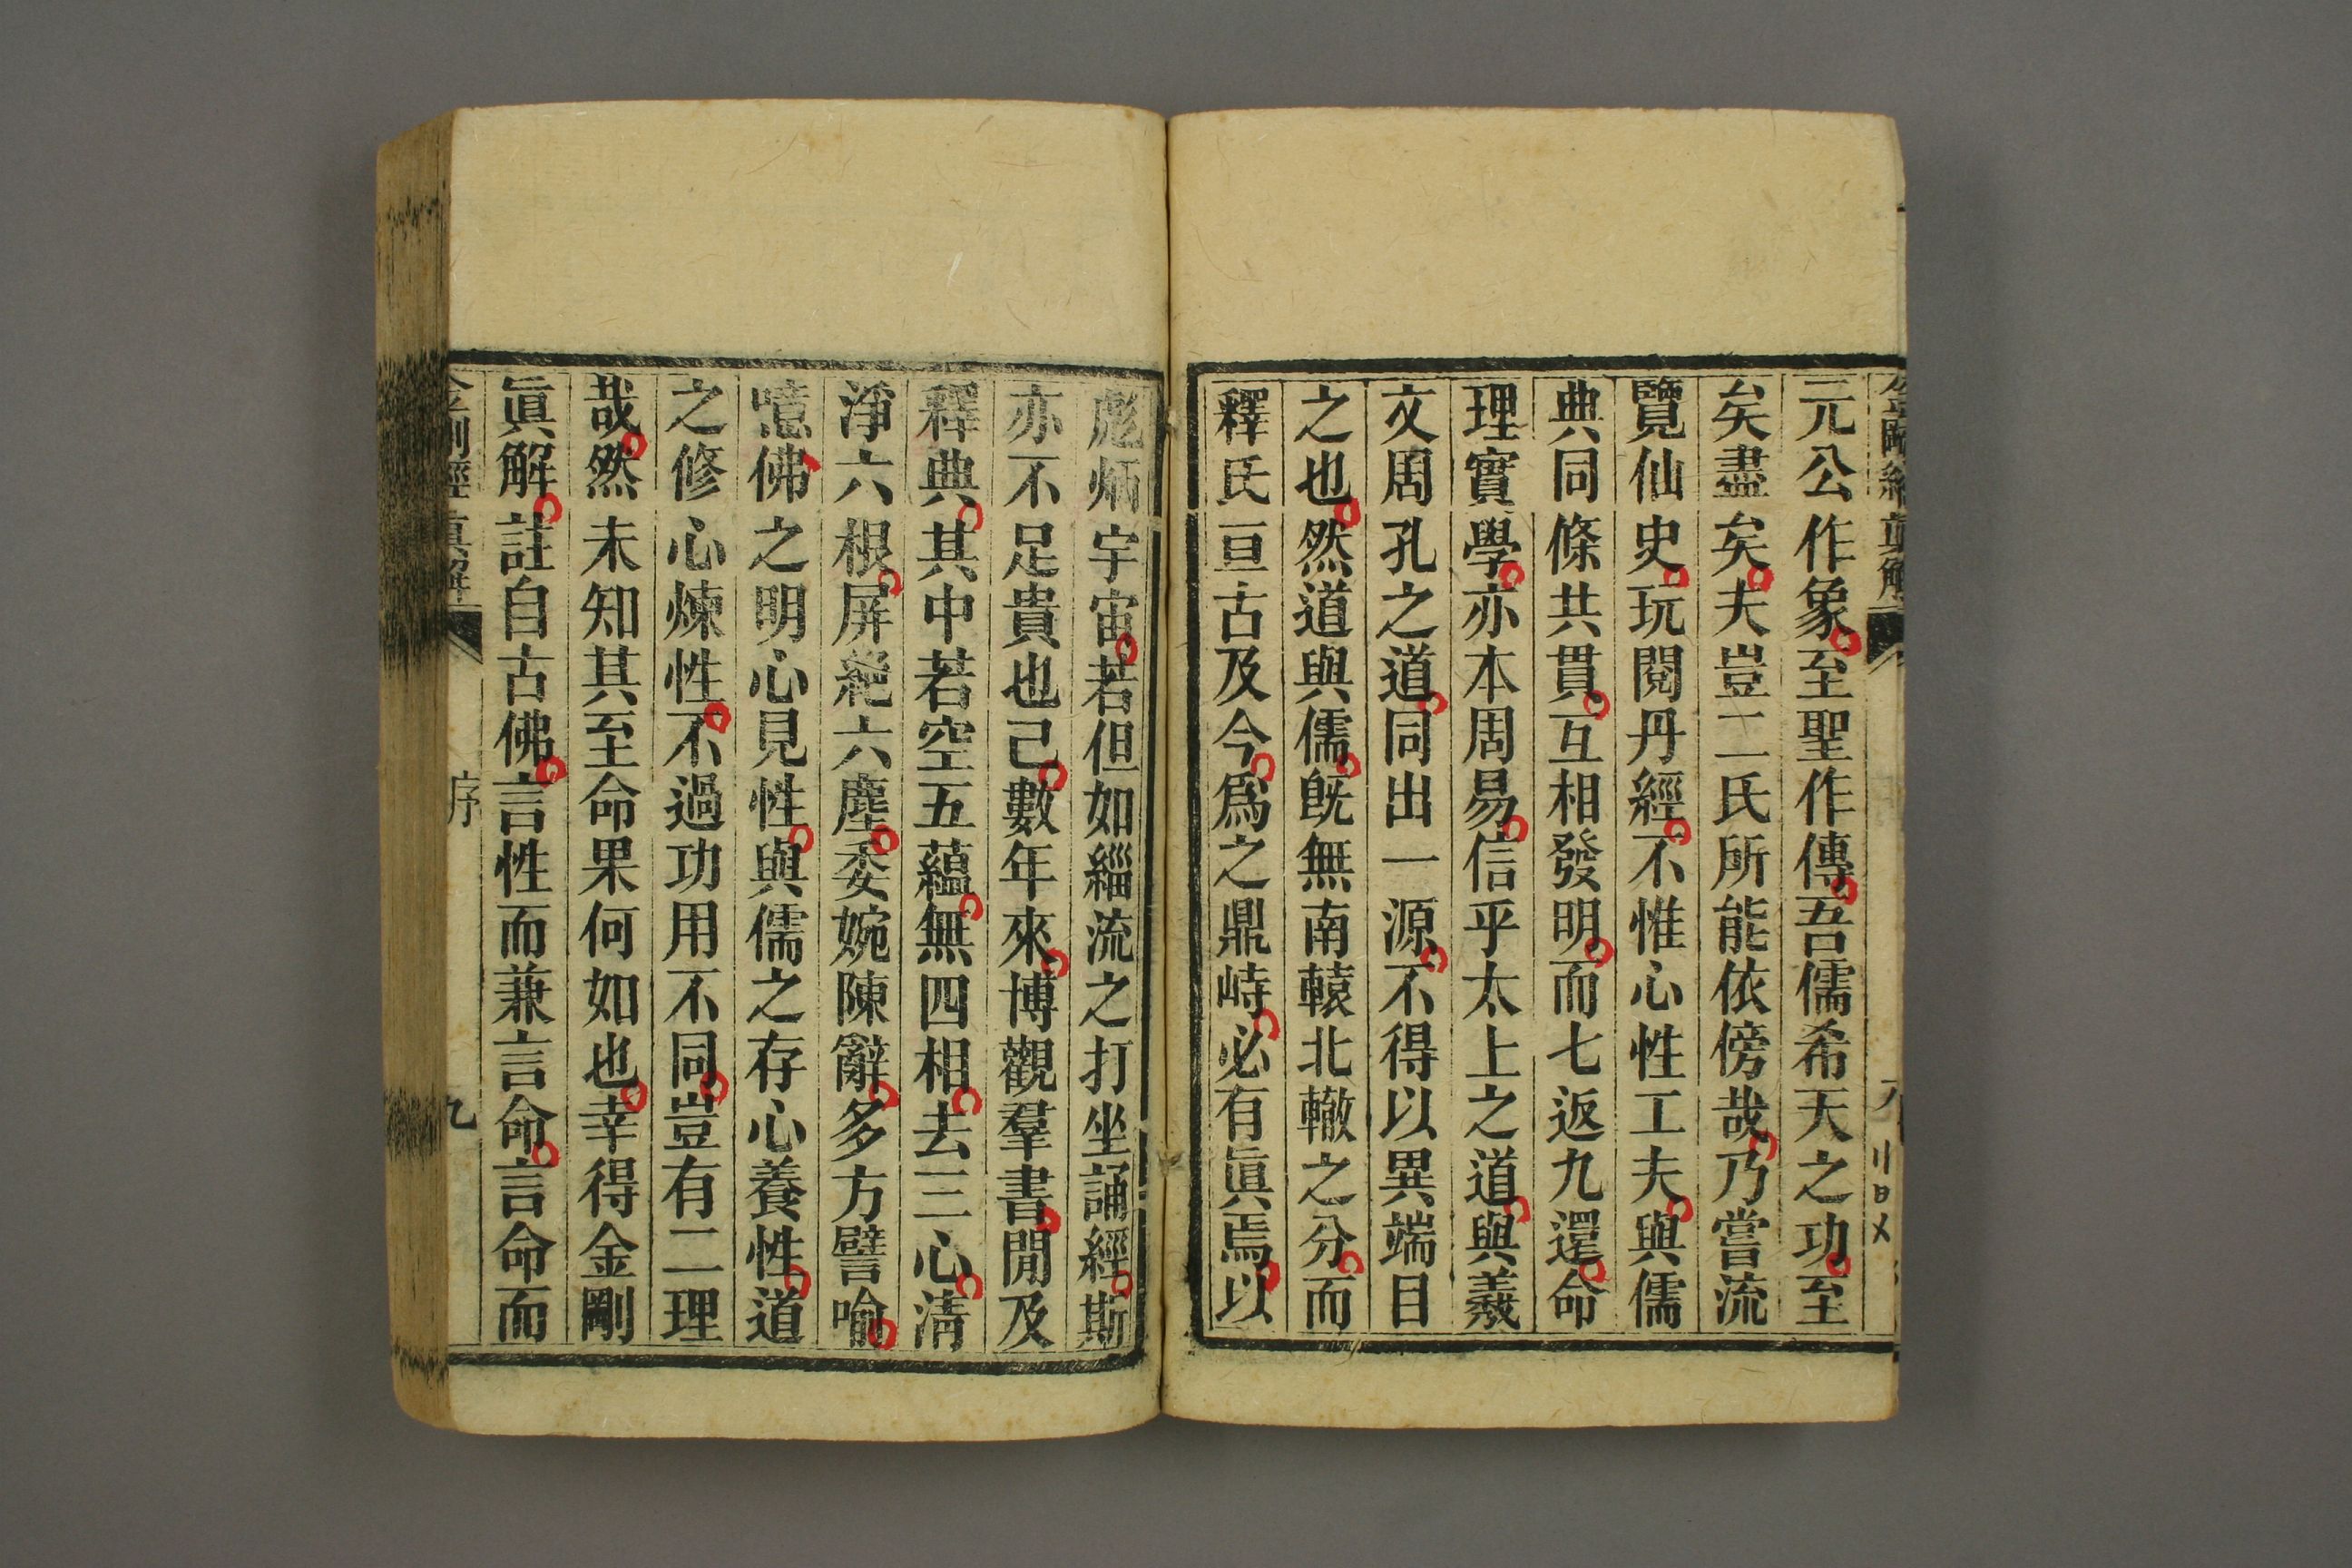 元公作象至聖作傳吾儒希天之功至
矣盡矣夫豈二氏所能依傍哉乃嘗流
覽仙史玩閱丹經不惟心性工夫與儒
典同條共貫互相發明而七返九還命
理實學亦本周易信乎太上之道與羲
文周孔之道同出一源不得以異端目
之也然道與儒旣無南轅北轍之分而
釋氏亘古及今爲之鼎峙必有眞焉以
彪炳宇宙若但如緇流之打坐誦經斯
亦不足貴也己數年來博觀羣書閒及
釋典其中若空五蘊無四相去三心淸
淨六根屏絶六塵委婉陳辭多方譬喻
噫佛之明心見性與儒之存心養性道
之修心煉性不過功用不同豈有二理
哉然未知其至命果何如也幸得金剛
眞解註自古佛言性而兼言命言命而
金剛經眞解
序
九